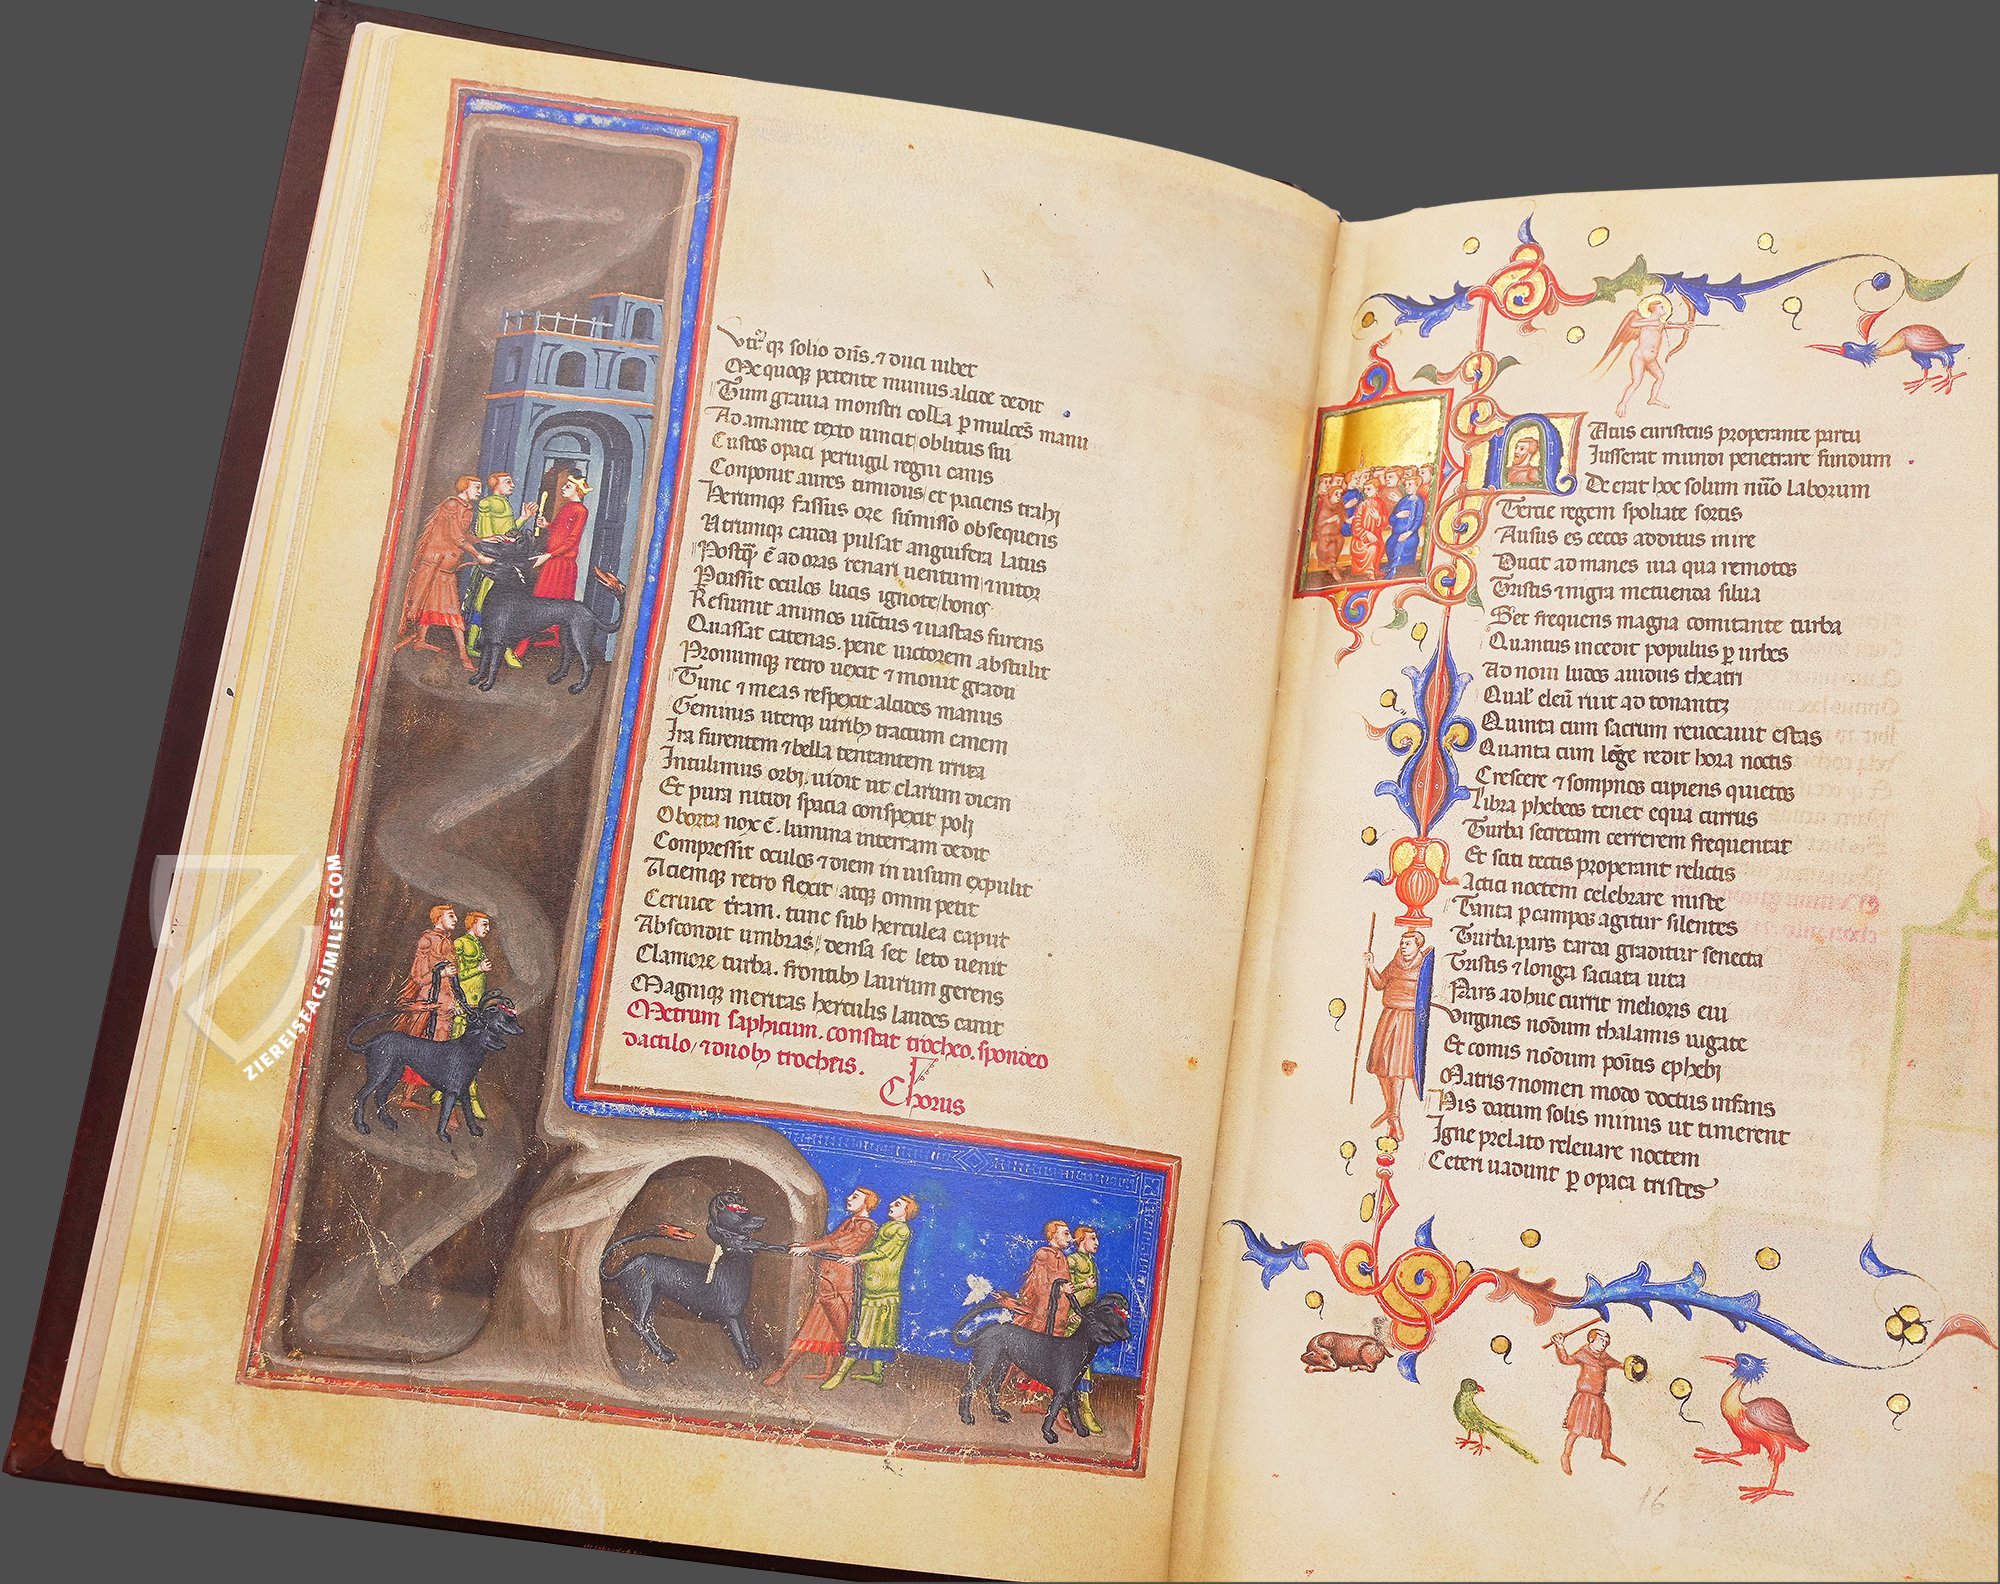 Utrumq; solio dn̄s. ⁊ duci iubet
Me quoq; petente munus alcide dedit
Tum grauia monstri colla ꝑmulces manu
Adamante texto uincit oblitus sui
Custos opaci peruigil regni canis
Conponit aures timidus et paciens trahi
Herumq; fassus ore sūmisso obsequens
Atrumq; cauda pulsat anguifera latus
Postq̄ ē ad oras tenari uentum ⁊ nitor
Pcussit oculos lucis ignote bonos
Resumit animos uictus ⁊ uastas furens
Quassat catenas. pene uictorem abstulit
Pronumq; retro uexit ⁊ mouit gradu
Tunc ⁊ meas respexit alcides manus
Geminis uterq; uiribȝ tractum canem
Ira furentem ⁊ bella tentantem irrita
Intulimus orbi. uidit ut clarum diem
Et pura nitidi spacia conspexit poli
Oborta nox ē. lumina in terram dedit
Compressit oculos ⁊ diem in uisum expulit
Aciemq; retro flexit atq; omni petit
Ceruice t̄ram. tunc sub herculea caput
Abscondit umbras. densa set leto uenit
Clamore turba. frontibȝ laurum gerens
Magniq; meritas herculis laudes canit
Metrum saphicum. constat trocheo. spondeo
dactilo, ⁊ duobȝ trocheis.
Chorus
Natus euristeus properante partu
Iusserat mundi penetrare fundum
De erat hoc solum nūo laborum
Tertie regem spoliare sortis
Ausus es cecos aditus inire
Ducit ad manes uia qua remotos
Tristis ⁊ nigra metuenda silua
Set frequens magna comitante turba
Quantus incedit populus ꝑ urbes
Ad noui ludos auidus theatri
Qual' eleū ruit ad tonantem
Quinta cum sacrum reuocauit estas
Quanta cum lōge redit hora noctis
Crescere ⁊ sompnos cupiens quietos
Libra phebeos tenet equa currus
Turba secretam cererem frequentat
Et sciti tectis properant relictis
Actici noctem celebrare miste
Tanta ꝑ campos agitur silentes
Turba. pars tarda graditur senecta
Tristis ⁊ longa saciata uita
Pars adhuc currit melioris eui
Virgines nōdum thalamis iugate
Et comis nōdum positis ephebi
Matris ⁊ nomen modo doctus infans
His datum solis minus ut timerent
Igne prelato releuare noctem
Ceteri uadunt ꝑ opaca tristes
16
ZIEREISFACSIMILES.COM